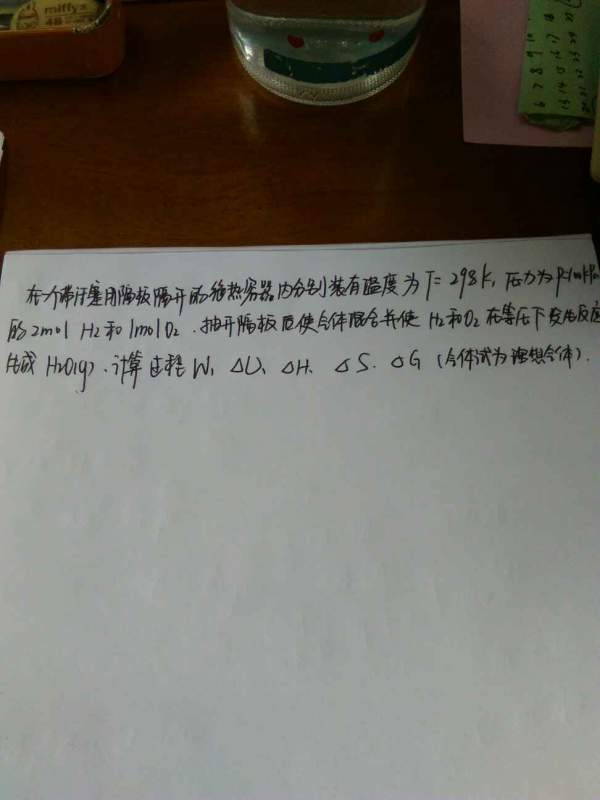 miffy
48
在一个带活塞用隔板隔开的绝热容器内分别装有温度为 T=298K, 压力为 P=100kPa
的 2mol H2 和 1mol O2. 抽开隔板后使气体混合并使 H2 和 O2 在等压下发生反应
生成 H2O(g). 计算过程 W, ΔU, ΔH, ΔS, ΔG (气体试为理想气体).